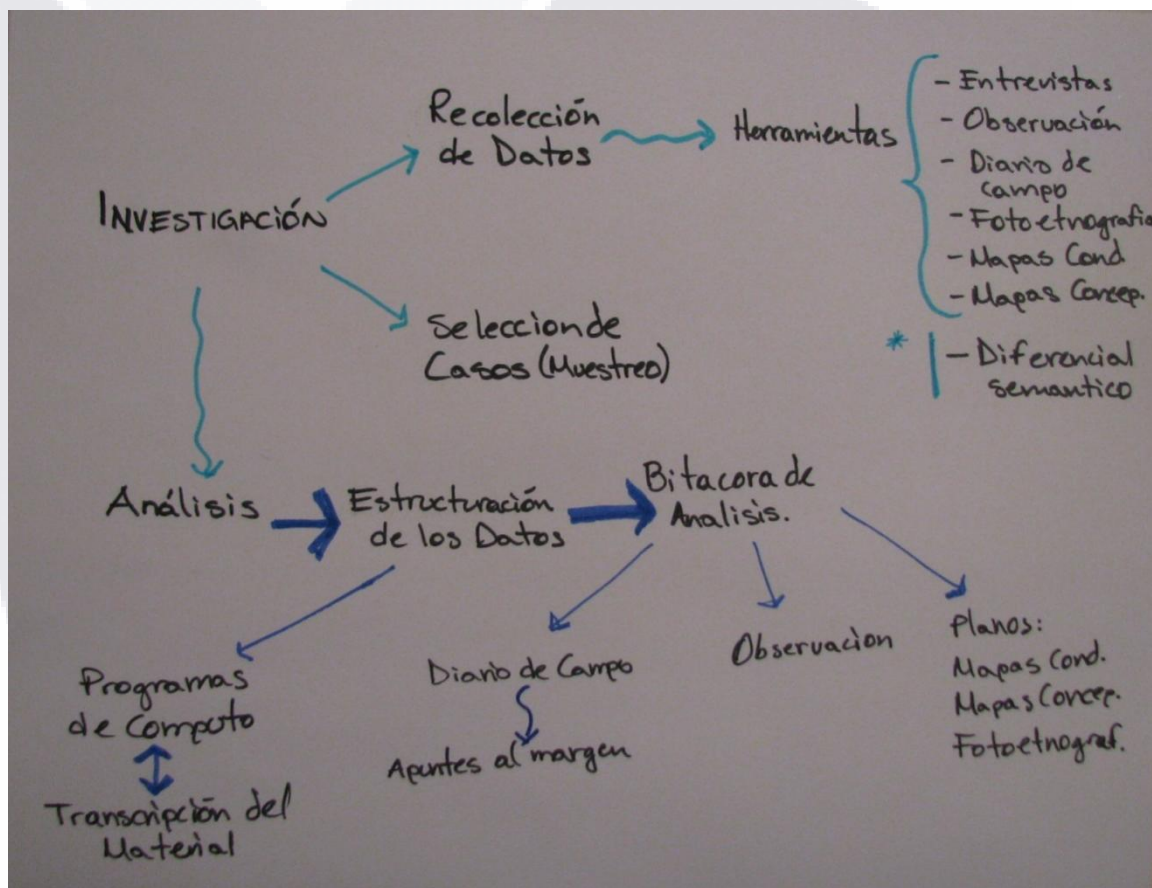 INVESTIGACIÓN
Recolección
de Datos
Herramientas
- Entrevistas
- Observación
- Diario de
campo
- Fotoetnografia
- Mapas Cond
- Mapas Concep.
* - Diferencial
semantico
Seleccion de
Casos (Muestreo)
Análisis
Estructuración
de los Datos
Bitacora de
Analisis.
Programas
de Computo
Transcripción del
Material
Diario de Campo
Apuntes al margen
Observacion
Planos:
Mapas Cond.
Mapas Concep.
Fotoetnograf.